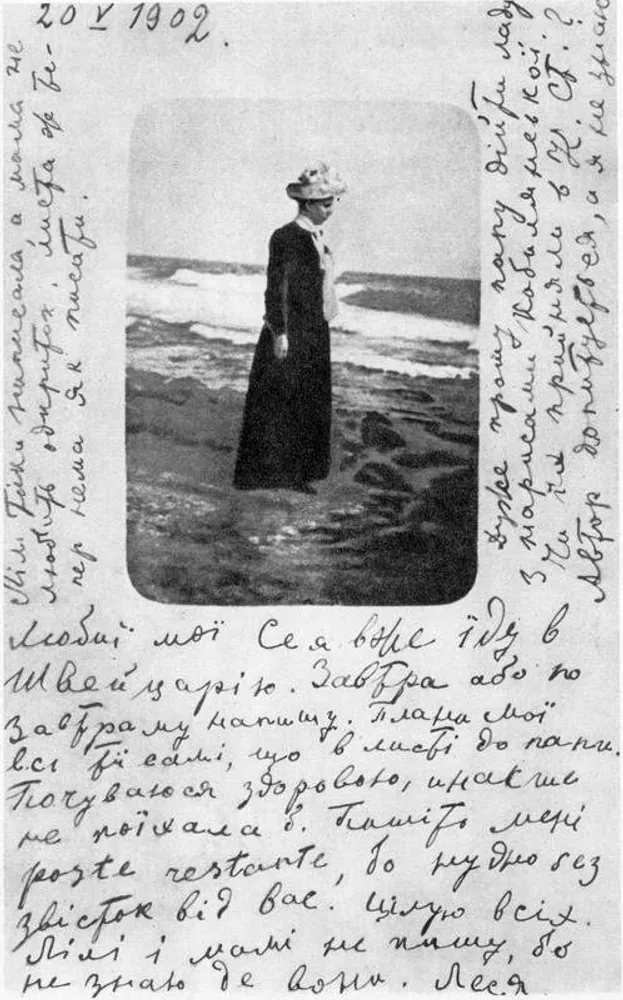 20 V 1902.
Любії мої Се я вже їду в
Швейцарію. Завтра або по
завтраму напишу. Плани мої
всі тії самі, що в листі до папи.
Почуваюся здоровою, инакше
не поїхала б. Пишіть мені
poste restante, бо нудно без
звісток від вас. Цілую всіх.
Лілі і мамі не пишу, бо
не знаю де вони. Леся
Лілі таки написала, а мама не
любить одкриток. листа ж те-
пер нема як писати.
Дуже прошу папу дійти ладу
з нарисами Кобилянської.
Чи їх прийняли в К. Ст.?
Автор допитується, а я не знаю